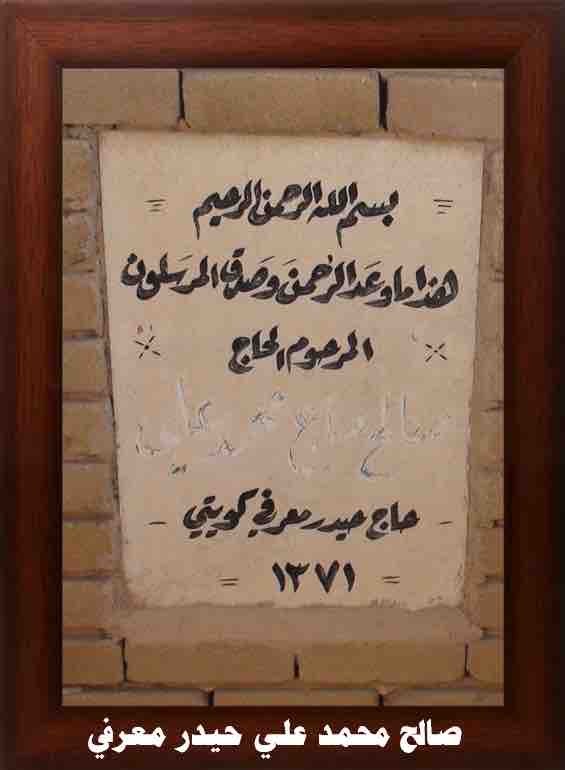 بسم الله الرحمن الرحيم
هذا ما وعد الرحمن وصدق المرسلون
المرحوم الحاج
صالح حاج محمد علي
حاج حيدر معرفي كويتي
١٣٧١
صالح محمد علي حيدر معرفي